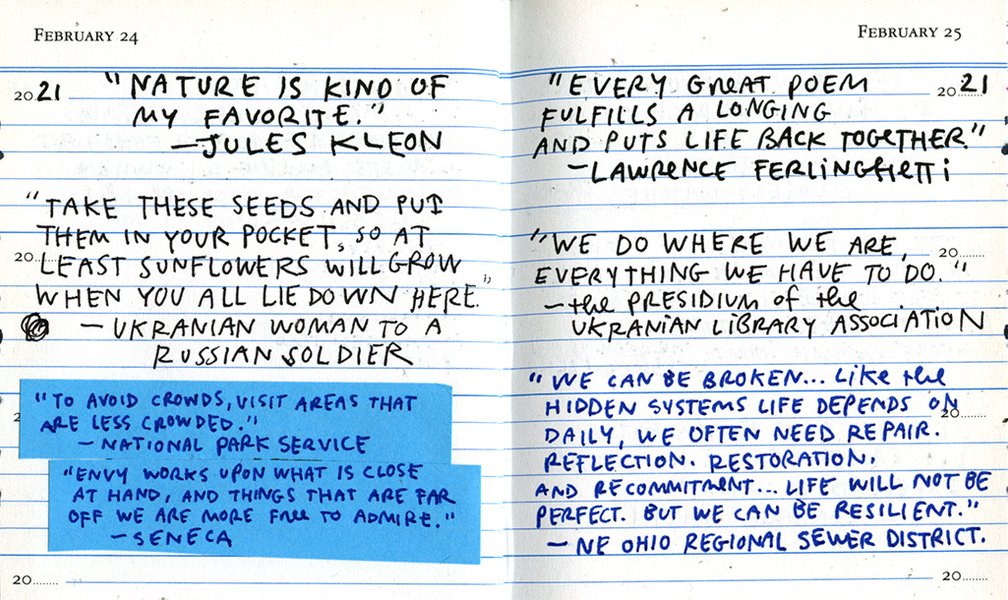 FEBRUARY 24
2021 "NATURE IS KIND OF
MY FAVORITE."
—JULES KLEON
"TAKE THESE SEEDS AND PUT
THEM IN YOUR POCKET, SO AT
20........ LEAST SUNFLOWERS WILL GROW
WHEN YOU ALL LIE DOWN HERE."
— UKRANIAN WOMAN TO A
RUSSIAN SOLDIER
"TO AVOID CROWDS, VISIT AREAS THAT
ARE LESS CROWDED."
— NATIONAL PARK SERVICE
"ENVY WORKS UPON WHAT IS CLOSE
AT HAND, AND THINGS THAT ARE FAR
OFF WE ARE MORE FREE TO ADMIRE."
— SENECA
20........
FEBRUARY 25
"EVERY GREAT POEM 2021
FULFILLS A LONGING
AND PUTS LIFE BACK TOGETHER."
—LAWRENCE FERLINGHETTI
"WE DO WHERE WE ARE, 20........
EVERYTHING WE HAVE TO DO."
—the PRESIDIUM of the
UKRANIAN LIBRARY ASSOCIATION
"WE CAN BE BROKEN... LIKE the
HIDDEN SYSTEMS LIFE DEPENDS ON 20........
DAILY, WE OFTEN NEED REPAIR.
REFLECTION. RESTORATION.
AND RECOMMITMENT... LIFE WILL NOT BE
PERFECT. BUT WE CAN BE RESILIENT."
— NE OHIO REGIONAL SEWER DISTRICT.
20........